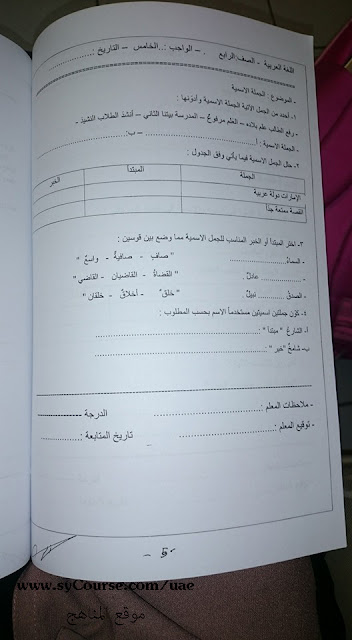 اللغة العربية - الصف الرابع - الواجب : .الخامس - التاريخ : .............
- الموضوع : الجملة الاسمية
١- أحدد من الجمل الآتية الجملة الاسمية وأدوّنها :
- رفع الطالب علم بلاده - العَلم مرفوعٌ - المدرسة بيتنا الثاني - أنشدَ الطلاب النشيدَ -
- الجملة الاسمية : أ............................ - ب:............................
٢- حلل الجمل الاسمية فيما يأتي وفق الجدول :
الجملة المبتدأ الخبر
الإمارات دولة عربية
القصة ممتعة جداً
٣- اختر المبتدأ أو الخبر المناسب للجمل الاسمية مما وضع بين قوسين :
- السماءُ.................... " صافٍ - صافيةٌ - واسعٌ "
- .................... عادلٌ " القضاةُ - القاضيان - القاضي "
- الصدقُ .............. نبيلٌ " خلقٌ - أخلاقٌ - خلقان "
٤- كوّن جملتين اسميتين مستخدماً الاسم بحسب المطلوب :
أ- الشارعُ " مبتدأ " :........................................
ب- شامخٌ "خبر" ........................................
- ملاحظات المعلم :............................ الدرجة ------------
- توقيع المعلم :............................ تاريخ المتابعة :............
- ٥ -
www.syCourse.com/uae
موقع المناهج